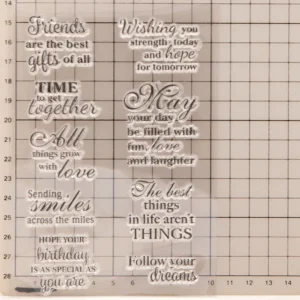 Friends
are the best
gifts of all
TIME
to get
together
All
things grow
with love
Sending
smiles
across the miles
HOPE YOUR
birthday
IS AS SPECIAL AS
you are
Wishing you
strength today
and hope
for tomorrow
May
your day
be filled with
fun, love
and laughter
The best
things
in life aren't
THINGS
Follow your
dreams
14
17
18
19
20
21
22
23
24
25
26
4
5
6
7
8
9
10
11
12
13
14